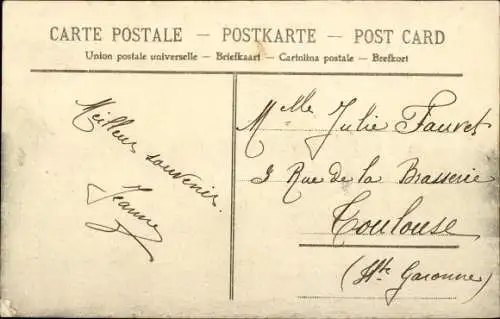 CARTE POSTALE — POSTKARTE — POST CARD
Union postale universelle — Briefkaart — Cartolina postale — Brefkort
Meilleur souvenir.
Jeanne
Melle Julie Fauvet
3 Rue de la Brasserie
Toulouse
(Hte Garonne)